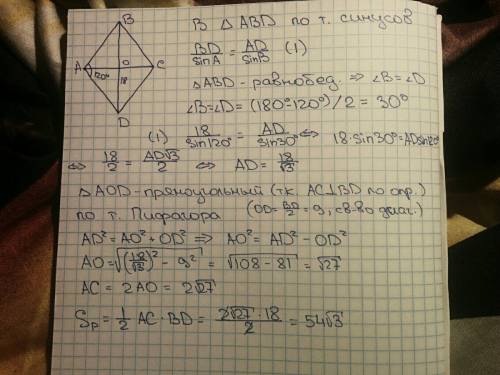 B
A
O
C
120°
18
D
В △ABD по т. синусов
BD/sinA = AD/sinB (1)
△ABD-равнобед. ⇒ ∠B=∠D
∠B=∠D=(180°-120°)/2 = 30°
(1) 18/sin120° = AD/sin30° ⇔ 18·sin30°=ADsin120°
⇔ 18/2 = AD√3/2 ⇔ AD= 18/√3
△AOD-прямоугольный (т.к. AC⊥BD по опр.)
по т. Пифагора (OD=BD/2=9, св-во диаг.)
AD²=AO²+OD² ⇒ AO²=AD²-OD²
AO=√((18/√3)²-9²) = √(108-81) = √27
AC = 2AO = 2√27
Sр=1/2 AC·BD= 2√27·18/2 = 54√3